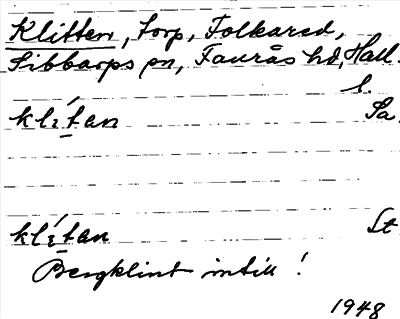 Klitten, torp, Folkared,
Sibbarps sn, Faurås hd, Hall.
l.
klɪ́tan Sa
klɪ́tan St
Bergklint intill!
1948